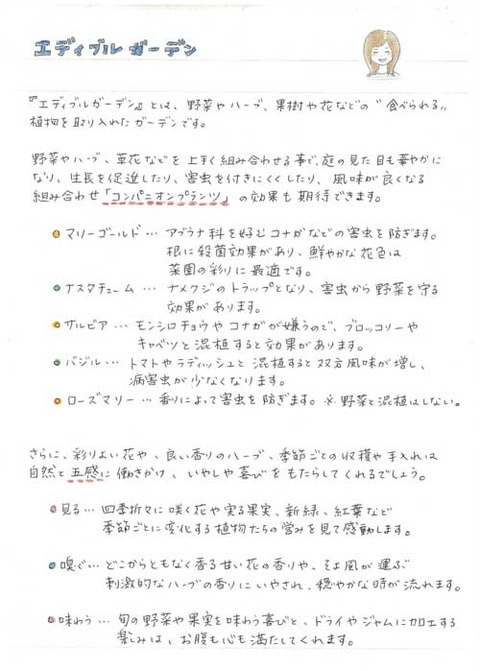 エディブルガーデン
『エディブルガーデン』とは、野菜やハーブ、果樹や花などの〝食べられる〟
植物を取り入れたガーデンです。
野菜やハーブ、草花などを上手く組み合わせる事で、庭の見た目も華やかに
なり、生長を促進したり、害虫を付きにくくしたり、風味が良くなる
組み合わせ「コンパニオンプランツ」の効果も期待できます。
マリーゴールド… アブラナ科を好むコナガなどの害虫を防ぎます。
根に殺菌効果があり、鮮やかな花色は
菜園の彩りに最適です。
ナスタチューム … ナメクジのトラップとなり、害虫から野菜を守る
効果があります。
サルビア … モンシロチョウやコナガが嫌うので、ブロッコリーや
キャベツと混植すると効果があります。
バジル … トマトやラディッシュと混植すると双方風味が増し、
病害虫が少なくなります。
ローズマリー … 香りによって害虫を防ぎます。※野菜と混植はしない。
さらに、彩りよい花や、良い香りのハーブ、季節ごとの収穫や手入れは
自然と五感に働きかけ、いやしや喜びをもたらしてくれるでしょう。
見る… 四季折々に咲く花や実る果実、新緑、紅葉など
季節ごとに変化する植物たちの営みを見て感動します。
嗅ぐ… どこからともなく香る甘い花の香りや、そよ風が運ぶ
刺激的なハーブの香りにいやされ、穏やかな時が流れます。
味わう… 旬の野菜や果実を味わう喜びと、ドライやジャムに加工する
楽しみは、お腹も心も満たしてくれます。